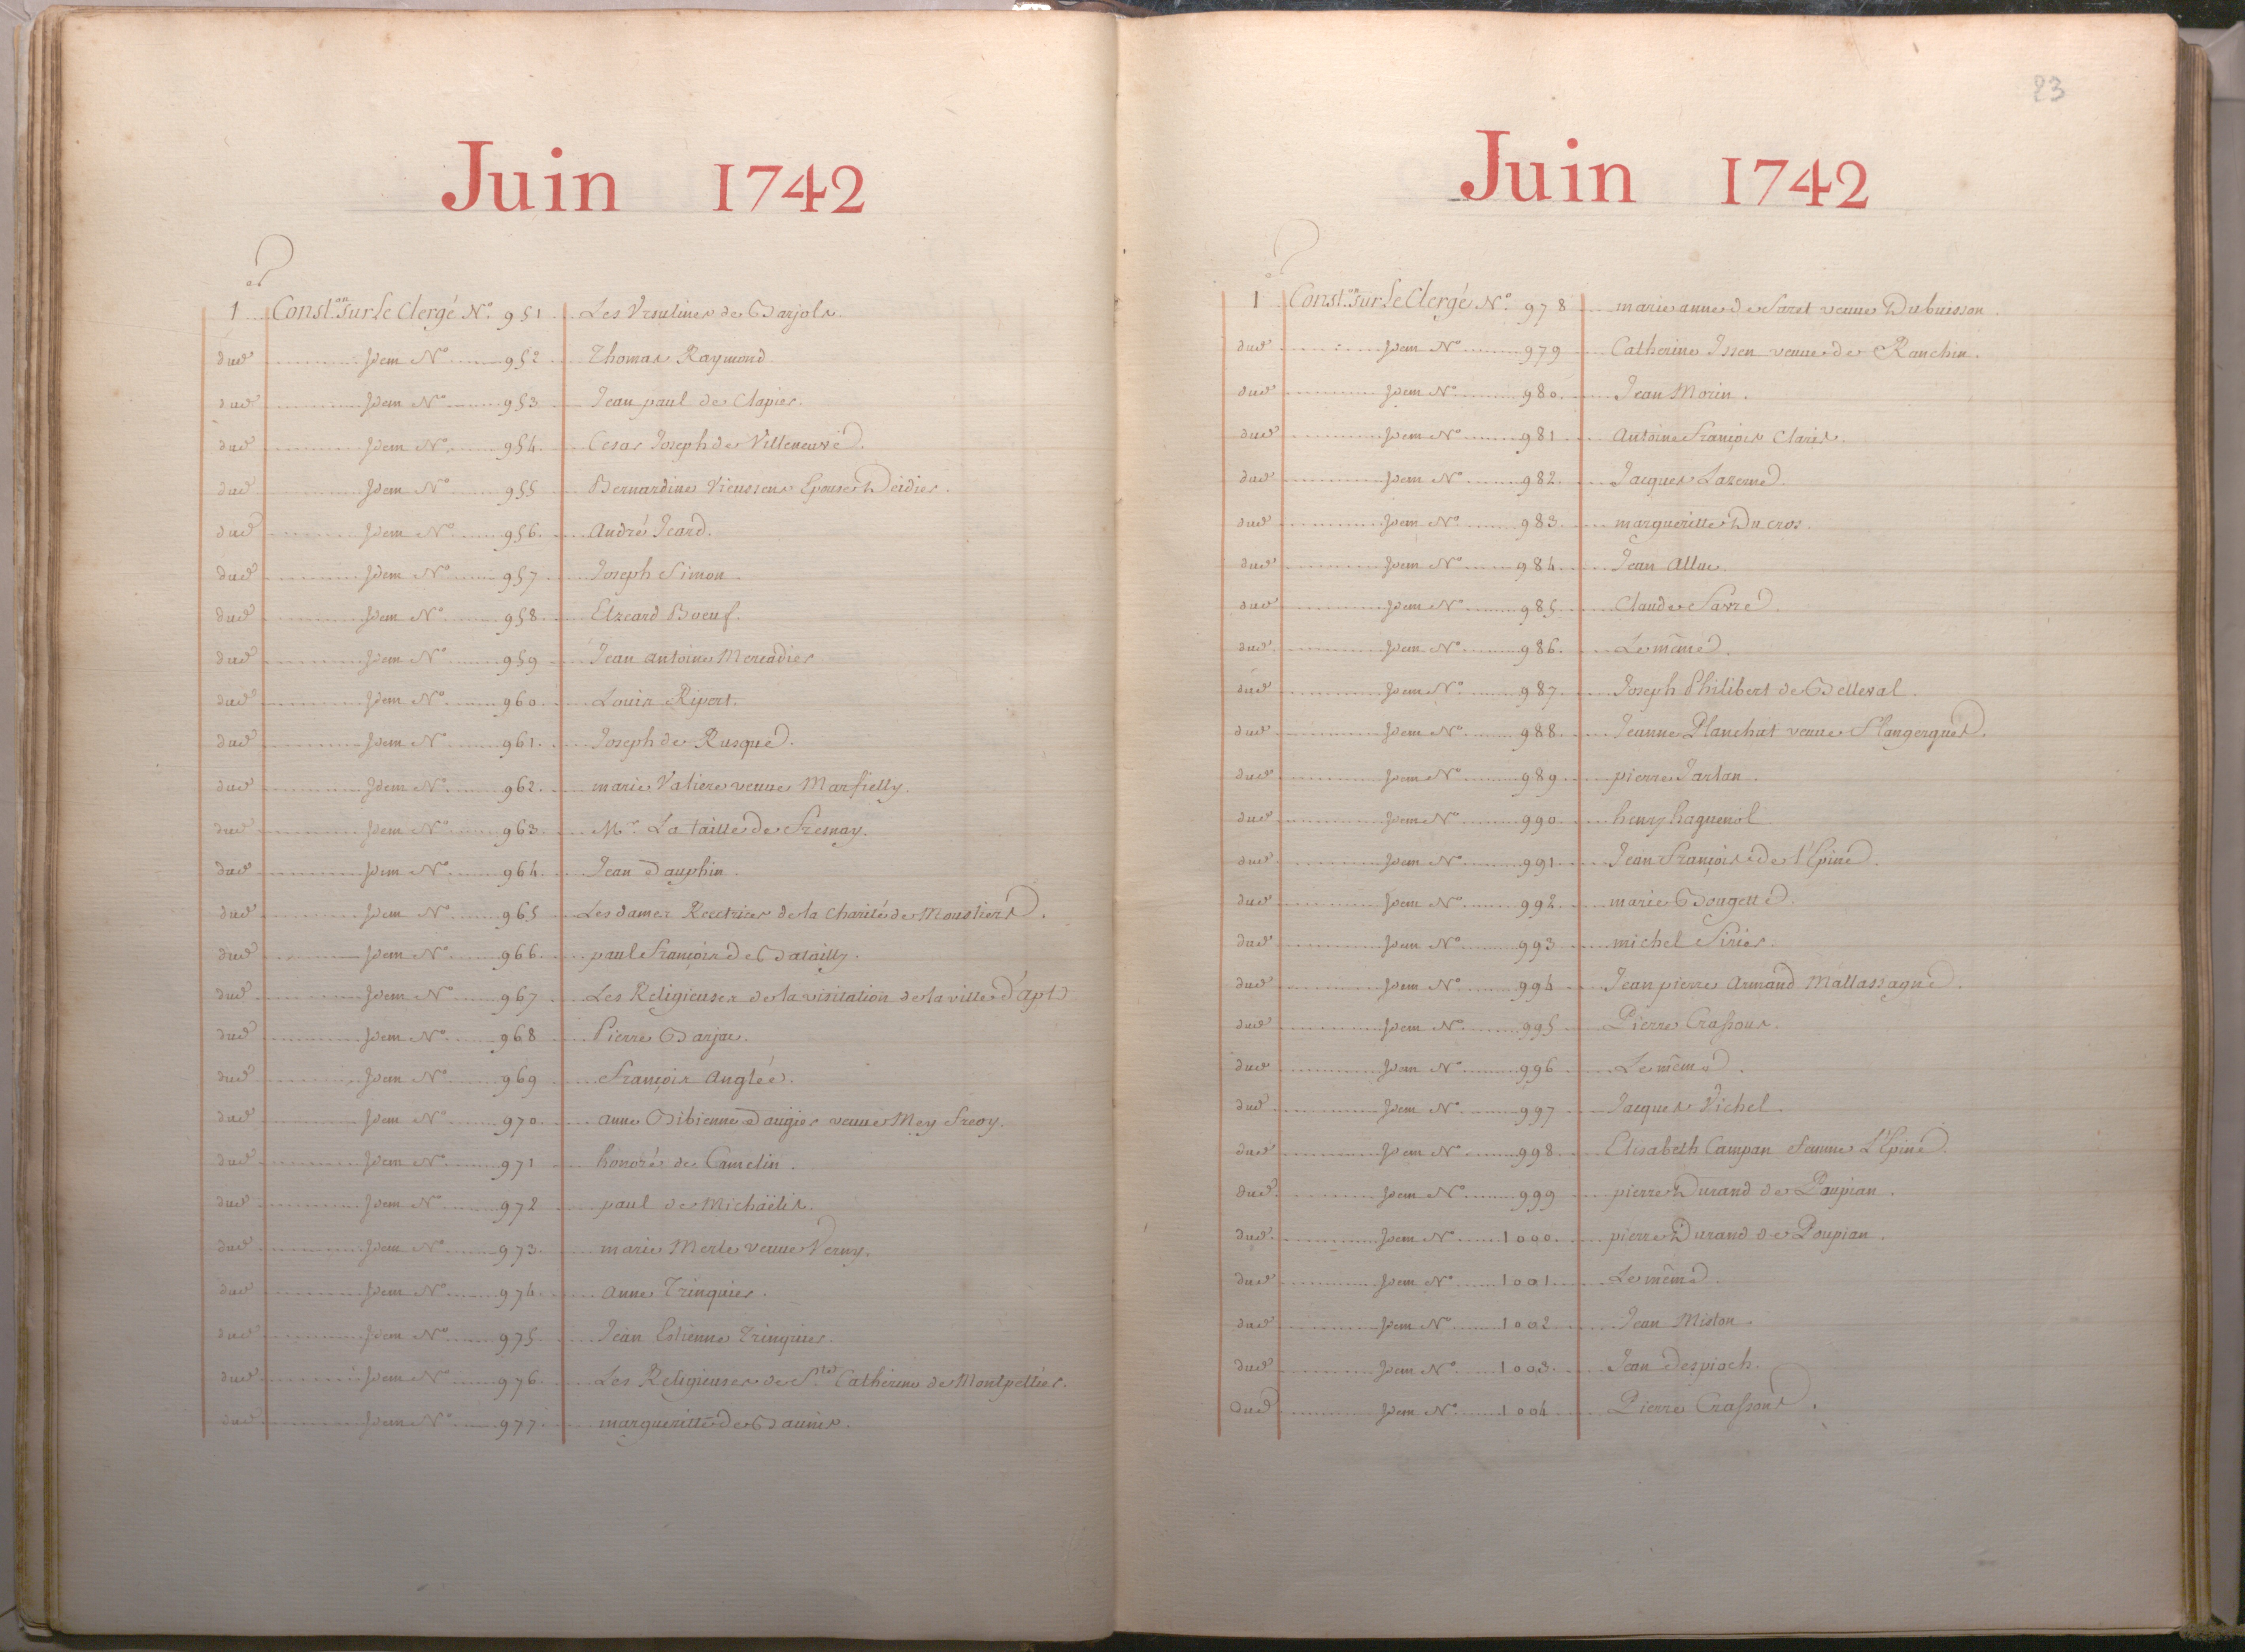 Juin 1742
1er Const.on sur Le Clergé N.o 951 Les Ursulines de Barjols.
dud. Idem N.o 952 Thomas Raymond
dud. Idem N.o 953 Jean paul de Clapier.
dud. Idem N.o 954. Cesar Joseph de Villeneuve.
dud. Idem N.o 955 Bernardine Vieussens Epouse Deidier.
dud. Idem N.o 956. André Icard.
dud. Idem N.o 957 Joseph Simon
dud. Idem N.o 958 Elzeard Boeuf.
dud. Idem N.o 959 Jean antoine Mercadier
dud. Idem N.o 960 Louis Ripert.
dud. Idem N.o 961. Joseph de Rusque.
dud. Idem N.o 962. marie Valiere veuve Marfielly.
dud. Idem N.o 963. M.r La taille de Fresnay.
dud. Idem N.o 964. Jean Dauphin.
dud. Idem N.o 965 Les dames Rectrices de la Charité de Moustiers.
dud. Idem N.o 966. paul François de Batailly.
dud. Idem N.o 967 Les Religieuses de la visitation de la ville d'Apt
dud. Idem N.o 968 Pierre Barjac.
dud. Idem N.o 969 François Anglée.
dud. Idem N.o 970. anne Bibienne Daugier veuve Mey
dud. Idem N.o 971 honoré de Camelin.
dud. Idem N.o 972 paul de Michäelis.
dud. Idem N.o 973. marie Merle veuve Verny.
dud. Idem N.o 974. anne Trinquier.
dud. Idem N.o 975 Jean Estienne Trinquier.
dud. Idem N.o 976. Les Religieuses de S.te Catherine de Montpellier.
dud. Idem N.o 977. margueritte de Baunis.
23
Juin 1742
1er Const.on sur Le Clergé N.o 978 marie anne de Saret veuve Dubuisson.
dud. Idem N.o 979 Catherine Issen veuve de Ranchin.
dud. Idem N.o 980. Jean Morin.
dud. Idem N.o 981 antoine François Claris.
dud. Idem N.o 982. Jacques Lazerme.
dud. Idem N.o 983. margueritte Ducros.
dud. Idem N.o 984. Jean Allue.
dud. Idem N.o 985 Claude Favre.
dud. Idem N.o 986. Le même.
dud. Idem N.o 987. Joseph Philibert de Belleval.
dud. Idem N.o 988. Jeanne Planchut veuve Flangergues.
dud. Idem N.o 989. pierre Tarlan.
dud. Idem N.o 990. henry haguenol.
dud. Idem N.o 991. Jean François de l'Epine.
dud. Idem N.o 992. marie Bougette.
dud. Idem N.o 993 michel Sirier.
dud. Idem N.o 994 Jean pierre Armand Mallassagne.
dud. Idem N.o 995 Pierre Crassous.
dud. Idem N.o 996 Le même.
dud. Idem N.o 997 Jacques Vichel.
dud. Idem N.o 998. Elisabeth Campan femme L'Epine.
dud. Idem N.o 999 pierre Durand de Poupian.
dud. Idem N.o 1000. pierre Durand de Poupian.
dud. Idem N.o 1001. Le même.
dud. Idem N.o 1002 Jean Miston.
dud. Idem N.o 1003. Jean Despioch.
dud. Idem N.o 1004 Pierre Crassous.